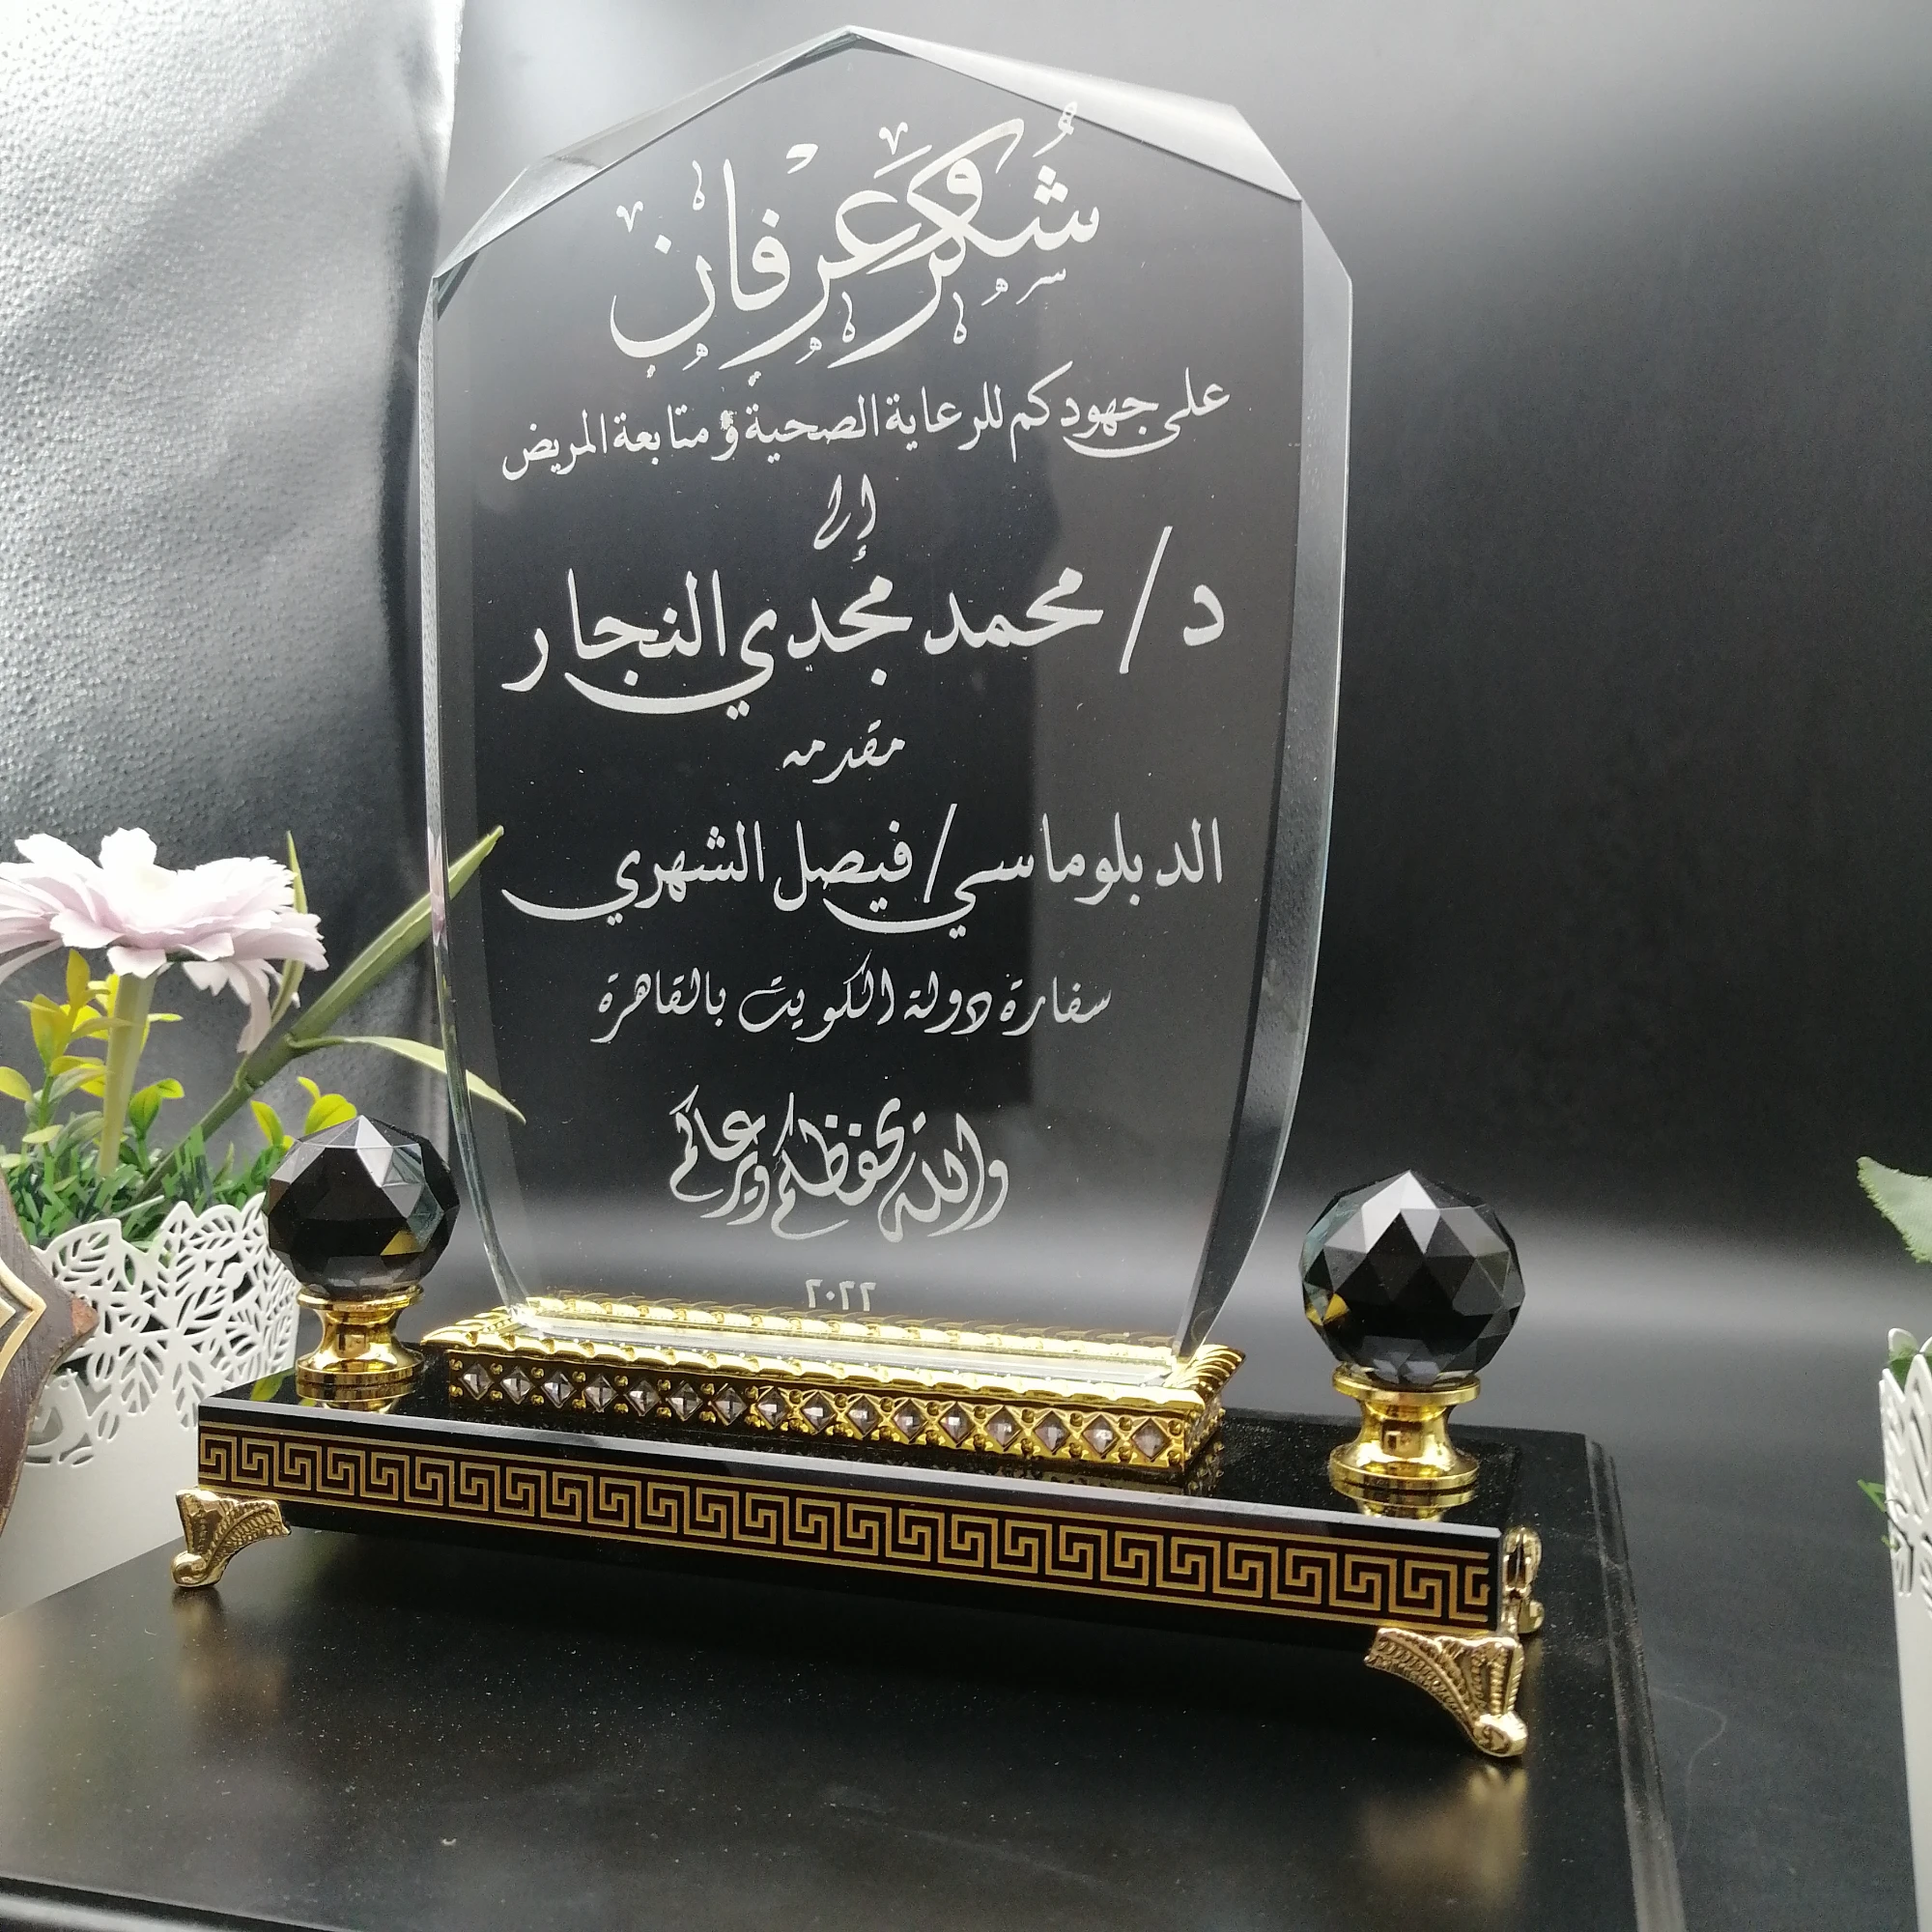 شُكرٌ وعرفان
على جهودكم للرعاية الصحية و متابعة المريض
إلى
د/ محمد مجدي النجار
مقدمه
الدبلوماسي/ فيصل الشهري
سفارة دولة الكويت بالقاهرة
والله يحفظكم ويرعاكم
٢٠٢٢